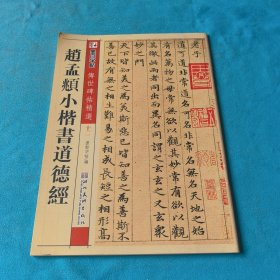 傳世碑帖精選
趙孟頫小楷書道德經
老子
道可道非常道名可名非常名無名天地之始
有名萬物之母常無欲以觀其妙常有欲以觀
其徼此兩者同出而異名同謂之玄玄之又玄衆
妙之門
天下皆知美之爲美斯惡已皆知善之爲善斯不
善已故有無之相生難易之相成長短之相形高